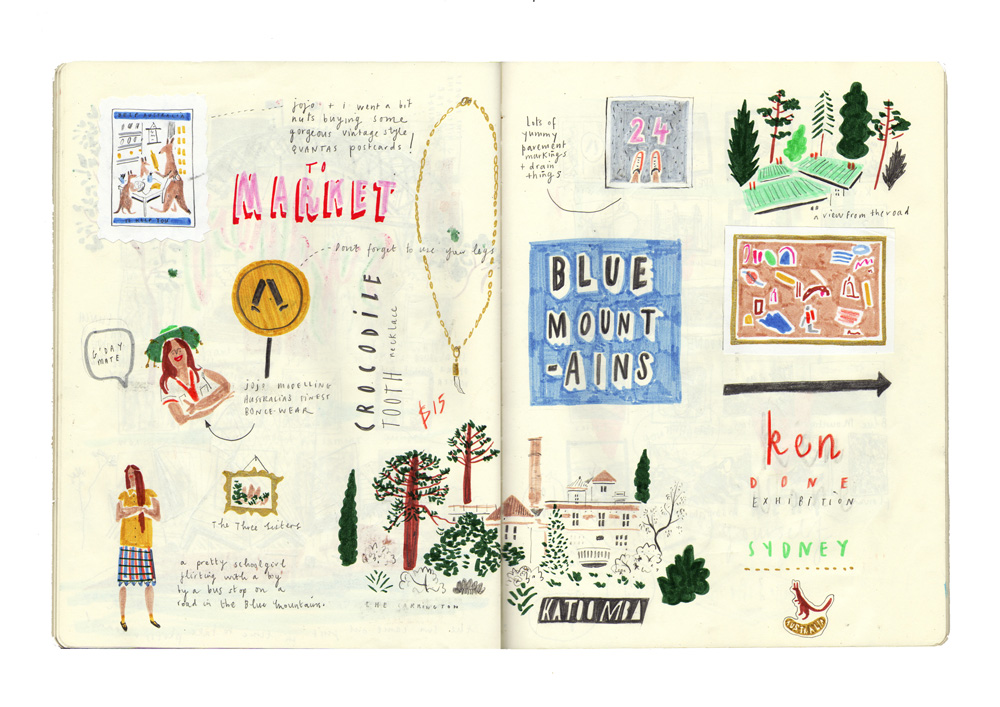 jojo + i went a bit
nuts buying some
gorgeous vintage style
QUANTAS postcards!
TO
MARKET
Don't forget to use your legs
G'DAY
MATE
JOJO MODELLING
AUSTRALIA'S FINEST
BONCE-WEAR
CROCODILE
TOOTH necklace
$15
The Three Sisters
a pretty schoolgirl
flirting with a boy
by a bus stop on a
road in the Blue Mountains.
THE CARRINGTON
KATOOMBA
Lots of
yummy
pavement
markings
+ drain
things
24
a view from the road
BLUE
MOUNT
-AINS
ken
DONE
EXHIBITION
SYDNEY
AUSTRALIA